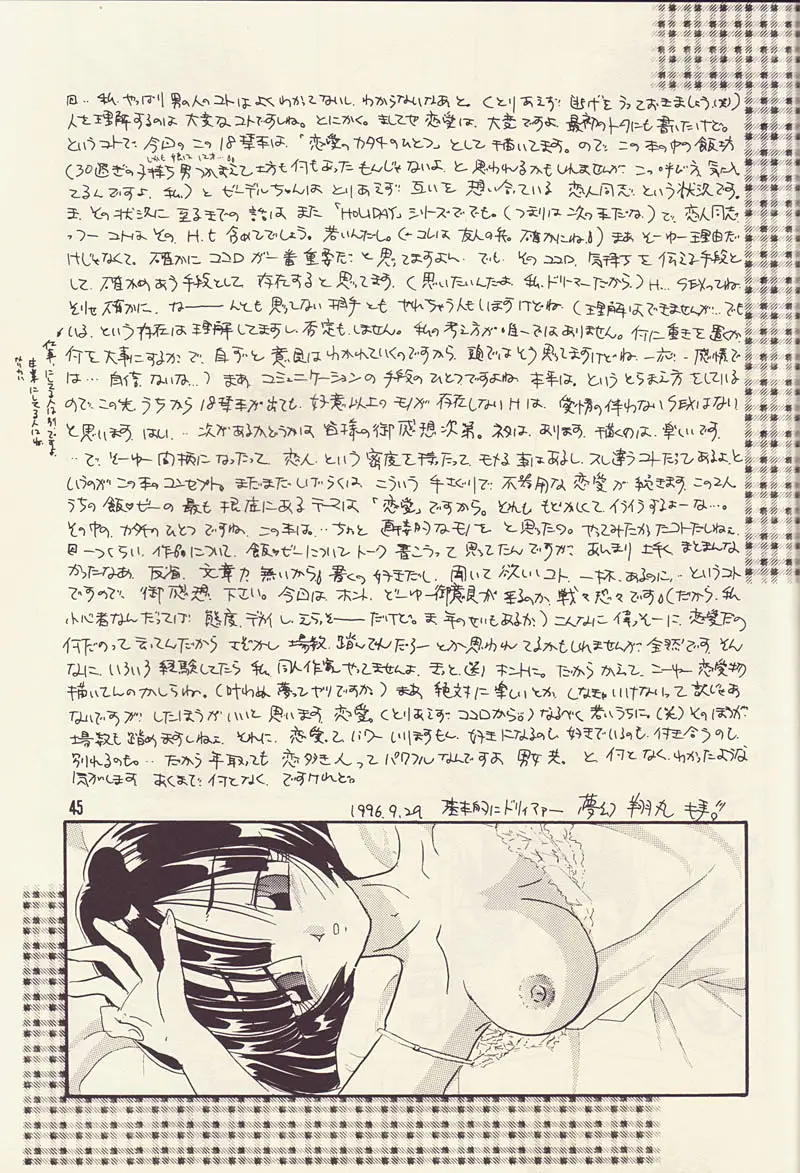 回‥私、やっぱり男の人のコトはよくわかってないし、わからないなあと。(とりあえず逃げをうっておきましょう(笑))
人を理解するのは大変なコトですしね。とにかく。ましてや恋愛は、大変ですよ、最初のトークにも書いたけど。
というコトで、今回のこの18禁本は、「恋愛のカタチのひとつ」として描いてます。ので、この本の中の飯坊
(30過ぎの子持ち男つかまえて坊も何もあったもんじゃないよ、と思われるかもしれませんが、この呼び方、気に入っ
てるんですよ、私。)とゼーデルちゃんはとりあえず、互いを想い合っている恋人同志、という状況です。
ま、その状況に至るまでの話はまた「HOLIDAY」シリーズででも。(つまりは次の本だな。)で、恋人同志
っつーコトはその、H、も含めてでしょう。若いんだし。(←コレは友人の弁。確かにね。)まあそーゆー理由だ
けじゃなくて。確かにココロが一番重要だと思ってますよん。でも、そのココロ、気持ちを伝える手段と
して、確かめあう手段として存在すると思ってます。(思いたいんだよ、私、ドリーマーだから。)H…SEXってね。
そりゃ確かに、なーーんとも思ってない相手ともやれちゃう人もいますけどね、(理解はできませんが…でも
いる、という存在は理解してますし、否定もしません。私の考え方が唯一ではありません。何に重きを置くか、
何を大事にするか、で、自ずと意見はわかれていくのですから、頭ではそう思ってますけどね、一応。感情で
は…自信、ないな…)まあ、コミュニケーションの手段のひとつですよね、本年は。というとらえ方をしている
ので、この先、うちから18禁本が出ても、好意以上のモノが存在しないHは、愛情の伴わないSEXはない
と思います、はい…次があるかどうかは皆様の御感想次第。ネタは、あります。描くのは、楽しいです。
‥で、そーゆー間柄になったって恋人、という密度を持ったって、モメる事はあるし、スレ違うコトだってあるよ、と
いうのがこの本のコンセプト。まだまだしばらくは、こういう手さぐりで、不器用な恋愛が続きます、この2人。
うちの飯♡ゼーの最も根底にあるテーマは「恋愛」ですから。とてももどかしくてイライラするよーな…。
その中の、カタチのひとつですね、この本は…ちょっと画期的なモノをと思ったの。やってみたかったコトだしねぇ。
毎一つくらい、作品について、飯♡ゼーについてトーク書こうって思ってたんですが、あんまり上手くまとまんな
かったなあ、反省。文章力無いから。書くの好きだし、聞いて欲しいコト、一杯、あるのに…というコト
ですので、御感想、下さい。今回はホント、どーゆー御意見が来るのか、戦々恐々です。(だから、私、
小心者なんだってば、態度、デカイし、えらそーだけど。ま、年のせいもあるか)こんなに偉そーに、恋愛だの
何だのって言ってんだからさぞかし場数、踏んでんだろーとか思われてるかもしれませんが、全然です。そん
なに、いろいろ経験してたら私、同人作家やってませんよ、きっと、(笑)ホントに。だからかえって、こーゆー恋愛物
描いてんのかしらね。(叶わぬ夢ってヤツですか)まあ、絶対に楽しいとか、しなきゃいけないって訳じゃあ
ないですが、したほうがいいと思います、恋愛。(とりあえず、ココロから。)なるべく若いうちに。(笑)そのほうが、
場数も踏めますしねぇ、それに、恋愛ってパワーいりますもん。好きになるのも、好きでいるのも、付き合うのも、
別れるのも。‥だから年取っても恋多き人ってパワフルなんですよ、男女共。と、何となく、わかったような
気がします。あくまで、何となく、ですけれど。
仕事にしてる人は別ですよ。
45
1996.9.29 基本的にドリィマァー 夢幻 翔丸